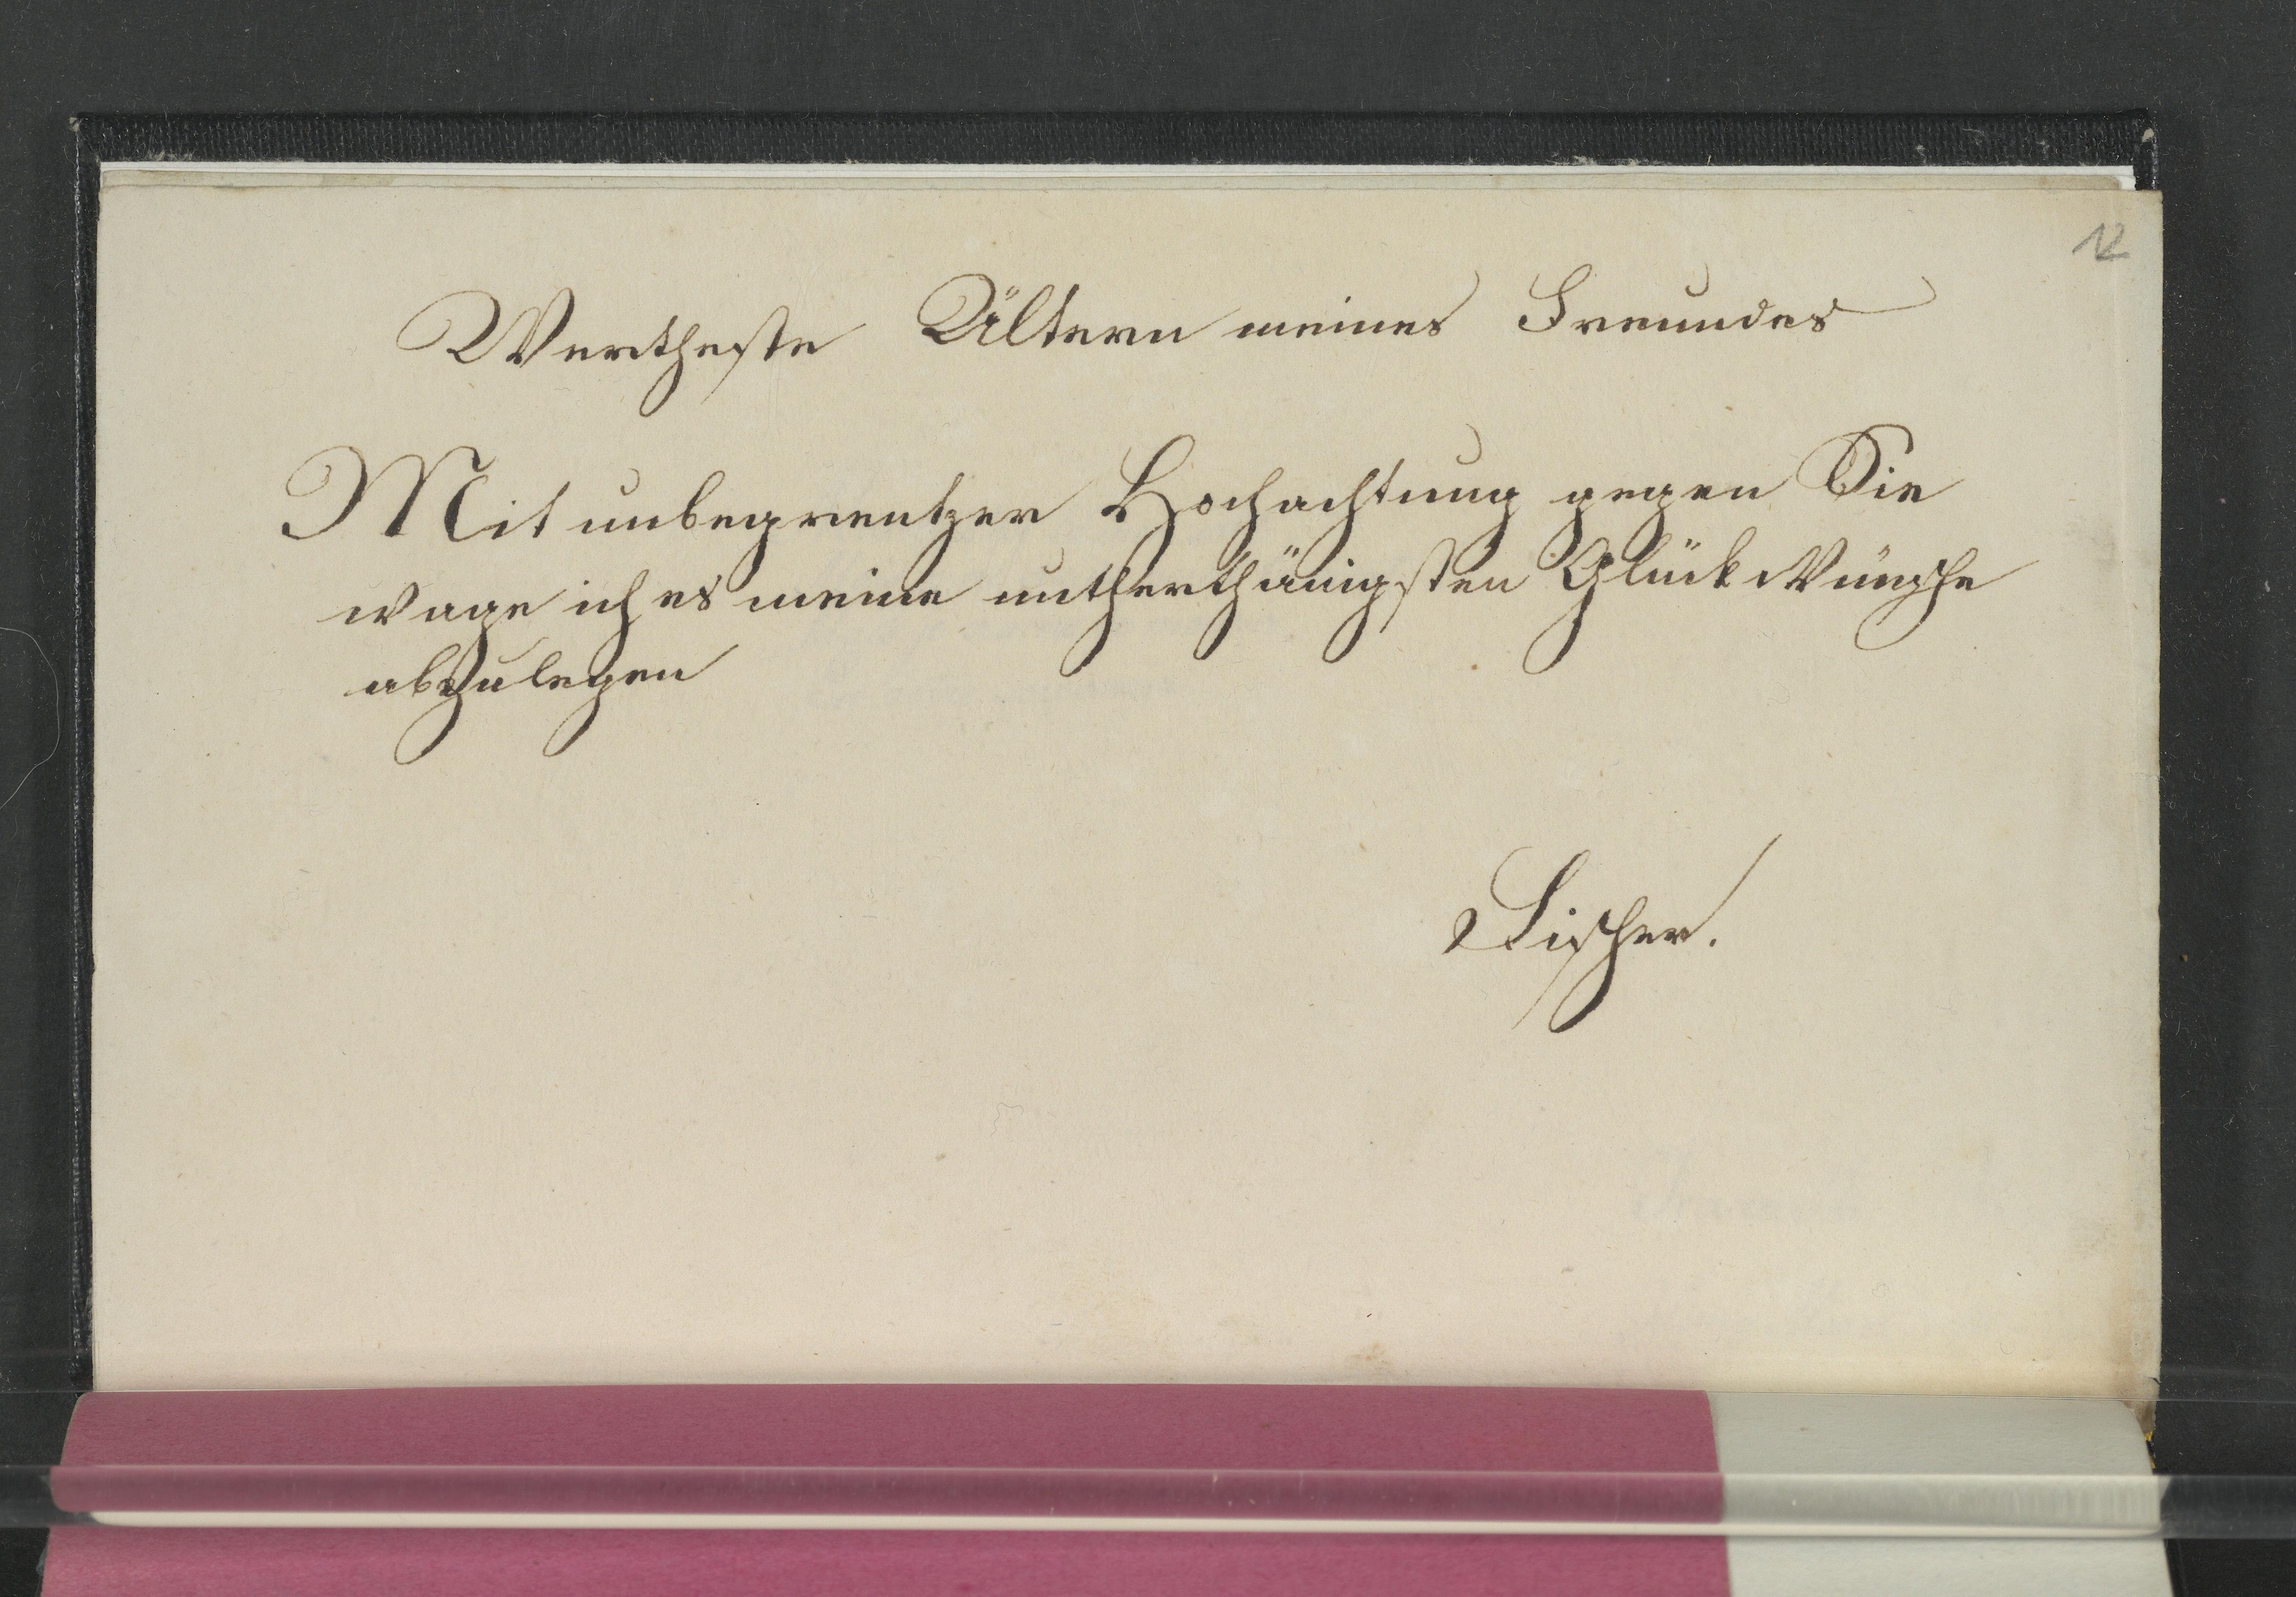 12
Wertheste Ältern meines Freundes
Mit unbegrentzer Hochachtung gegen Sie
wage ich es meine untherthänigsten Glückwünsche
abzulegen
Lischer.